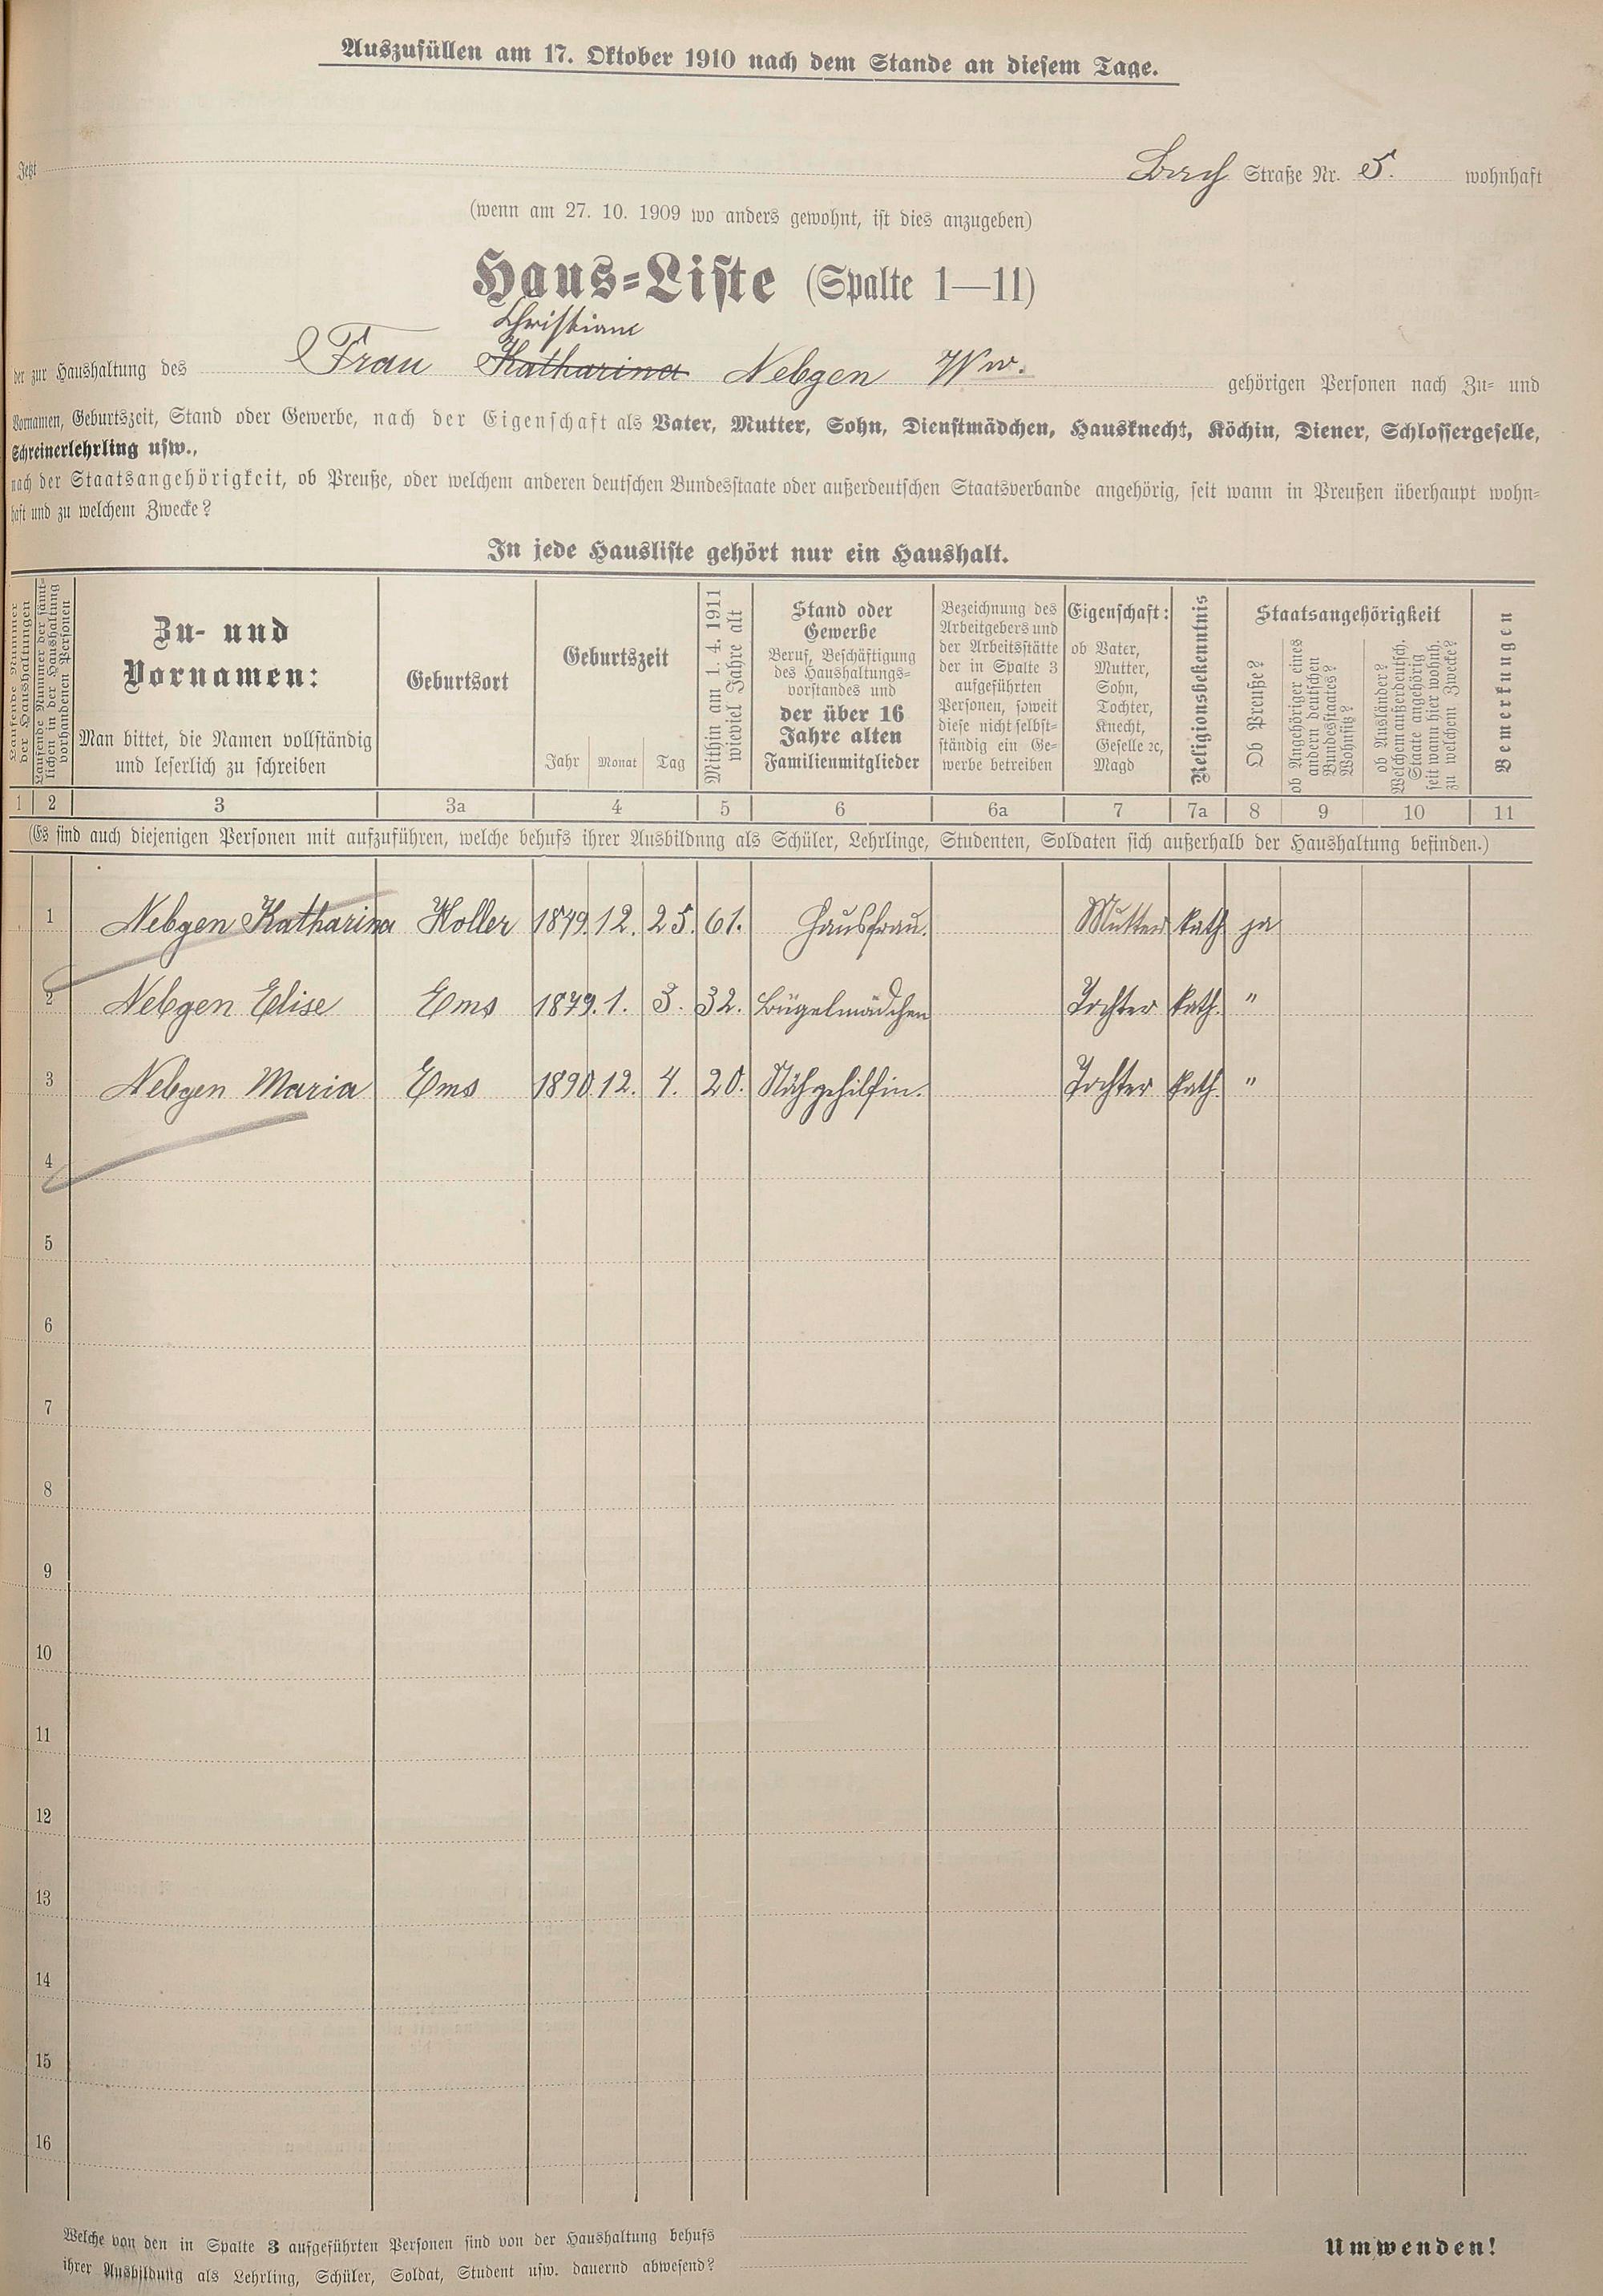 Auszufüllen am 17. Oktober 1910 nach dem Stande an diesem Tage.
Jetzt Straße Nr. 5. wohnhaft
(wenn am 27. 10. 1909 wo anders gewohnt, ist dies anzugeben)
Haus-Liste (Spalte 1—11)
Christiane
der zur Haushaltung des Frau Katharina Nebgen Ww. gehörigen Personen nach Zu- und
Vornamen, Geburtszeit, Stand oder Gewerbe, nach der Eigenschaft als Vater, Mutter, Sohn, Dienstmädchen, Hausknecht, Köchin, Diener, Schlossergeselle,
Schreinerlehrling usw.,
nach der Staatsangehörigkeit, ob Preuße, oder welchem anderen deutschen Bundesstaate oder außerdeutschen Staatsverbande angehörig, seit wann in Preußen überhaupt wohn-
haft und zu welchem Zwecke?
In jede Hausliste gehört nur ein Haushalt.
Laufende Nummer
der Haushaltungen
Laufende Nummer der sämt-
lichen in der Haushaltung
vorhandenen Personen
Zu- und
Vornamen:
Man bittet, die Namen vollständig
und leserlich zu schreiben
Geburtsort
Geburtszeit
Jahr Monat Tag
Mithin am 1. 4. 1911
wieviel Jahre alt
Stand oder
Gewerbe
Beruf, Beschäftigung
des Haushaltungs-
vorstandes und
der über 16
Jahre alten
Familienmitglieder
Bezeichnung des
Arbeitgebers und
der Arbeitsstätte
der in Spalte 3
aufgeführten
Personen, soweit
diese nicht selbst-
ständig ein Ge-
werbe betreiben
Eigenschaft:
ob Vater,
Mutter,
Sohn,
Tochter,
Knecht,
Geselle ꝛc,
Magd
Religionsbekenntnis
Staatsangehörigkeit
Ob Preuße?
ob Angehöriger eines
andern deutschen
Bundesstaates?
Wohnsitz?
ob Ausländer?
Welchem außerdeutsch.
Staate angehörig
seit wann hier wohnh.
zu welchem Zwecke?
Bemerkungen
1 2 3 3a 4 5 6 6a 7 7a 8 9 10 11
(Es sind auch diejenigen Personen mit aufzuführen, welche behufs ihrer Ausbildung als Schüler, Lehrlinge, Studenten, Soldaten sich außerhalb der Haushaltung befinden.)
1 Nebgen Katharina Holler 1849. 12. 25. 61. Hausfrau. Mutter kath ja
2 Nebgen Elise Ems 1879. 1. 3. 32. Bügelmädchen Tochter kath. "
3 Nebgen Maria Ems 1890. 12. 4. 20. Nähgehilfin. Tochter kath. "
4
5
6
7
8
9
10
11
12
13
14
15
16
Welche von den in Spalte 3 aufgeführten Personen sind von der Haushaltung behufs
ihrer Ausbildung als Lehrling, Schüler, Soldat, Student usw. dauernd abwesend?
Umwenden!